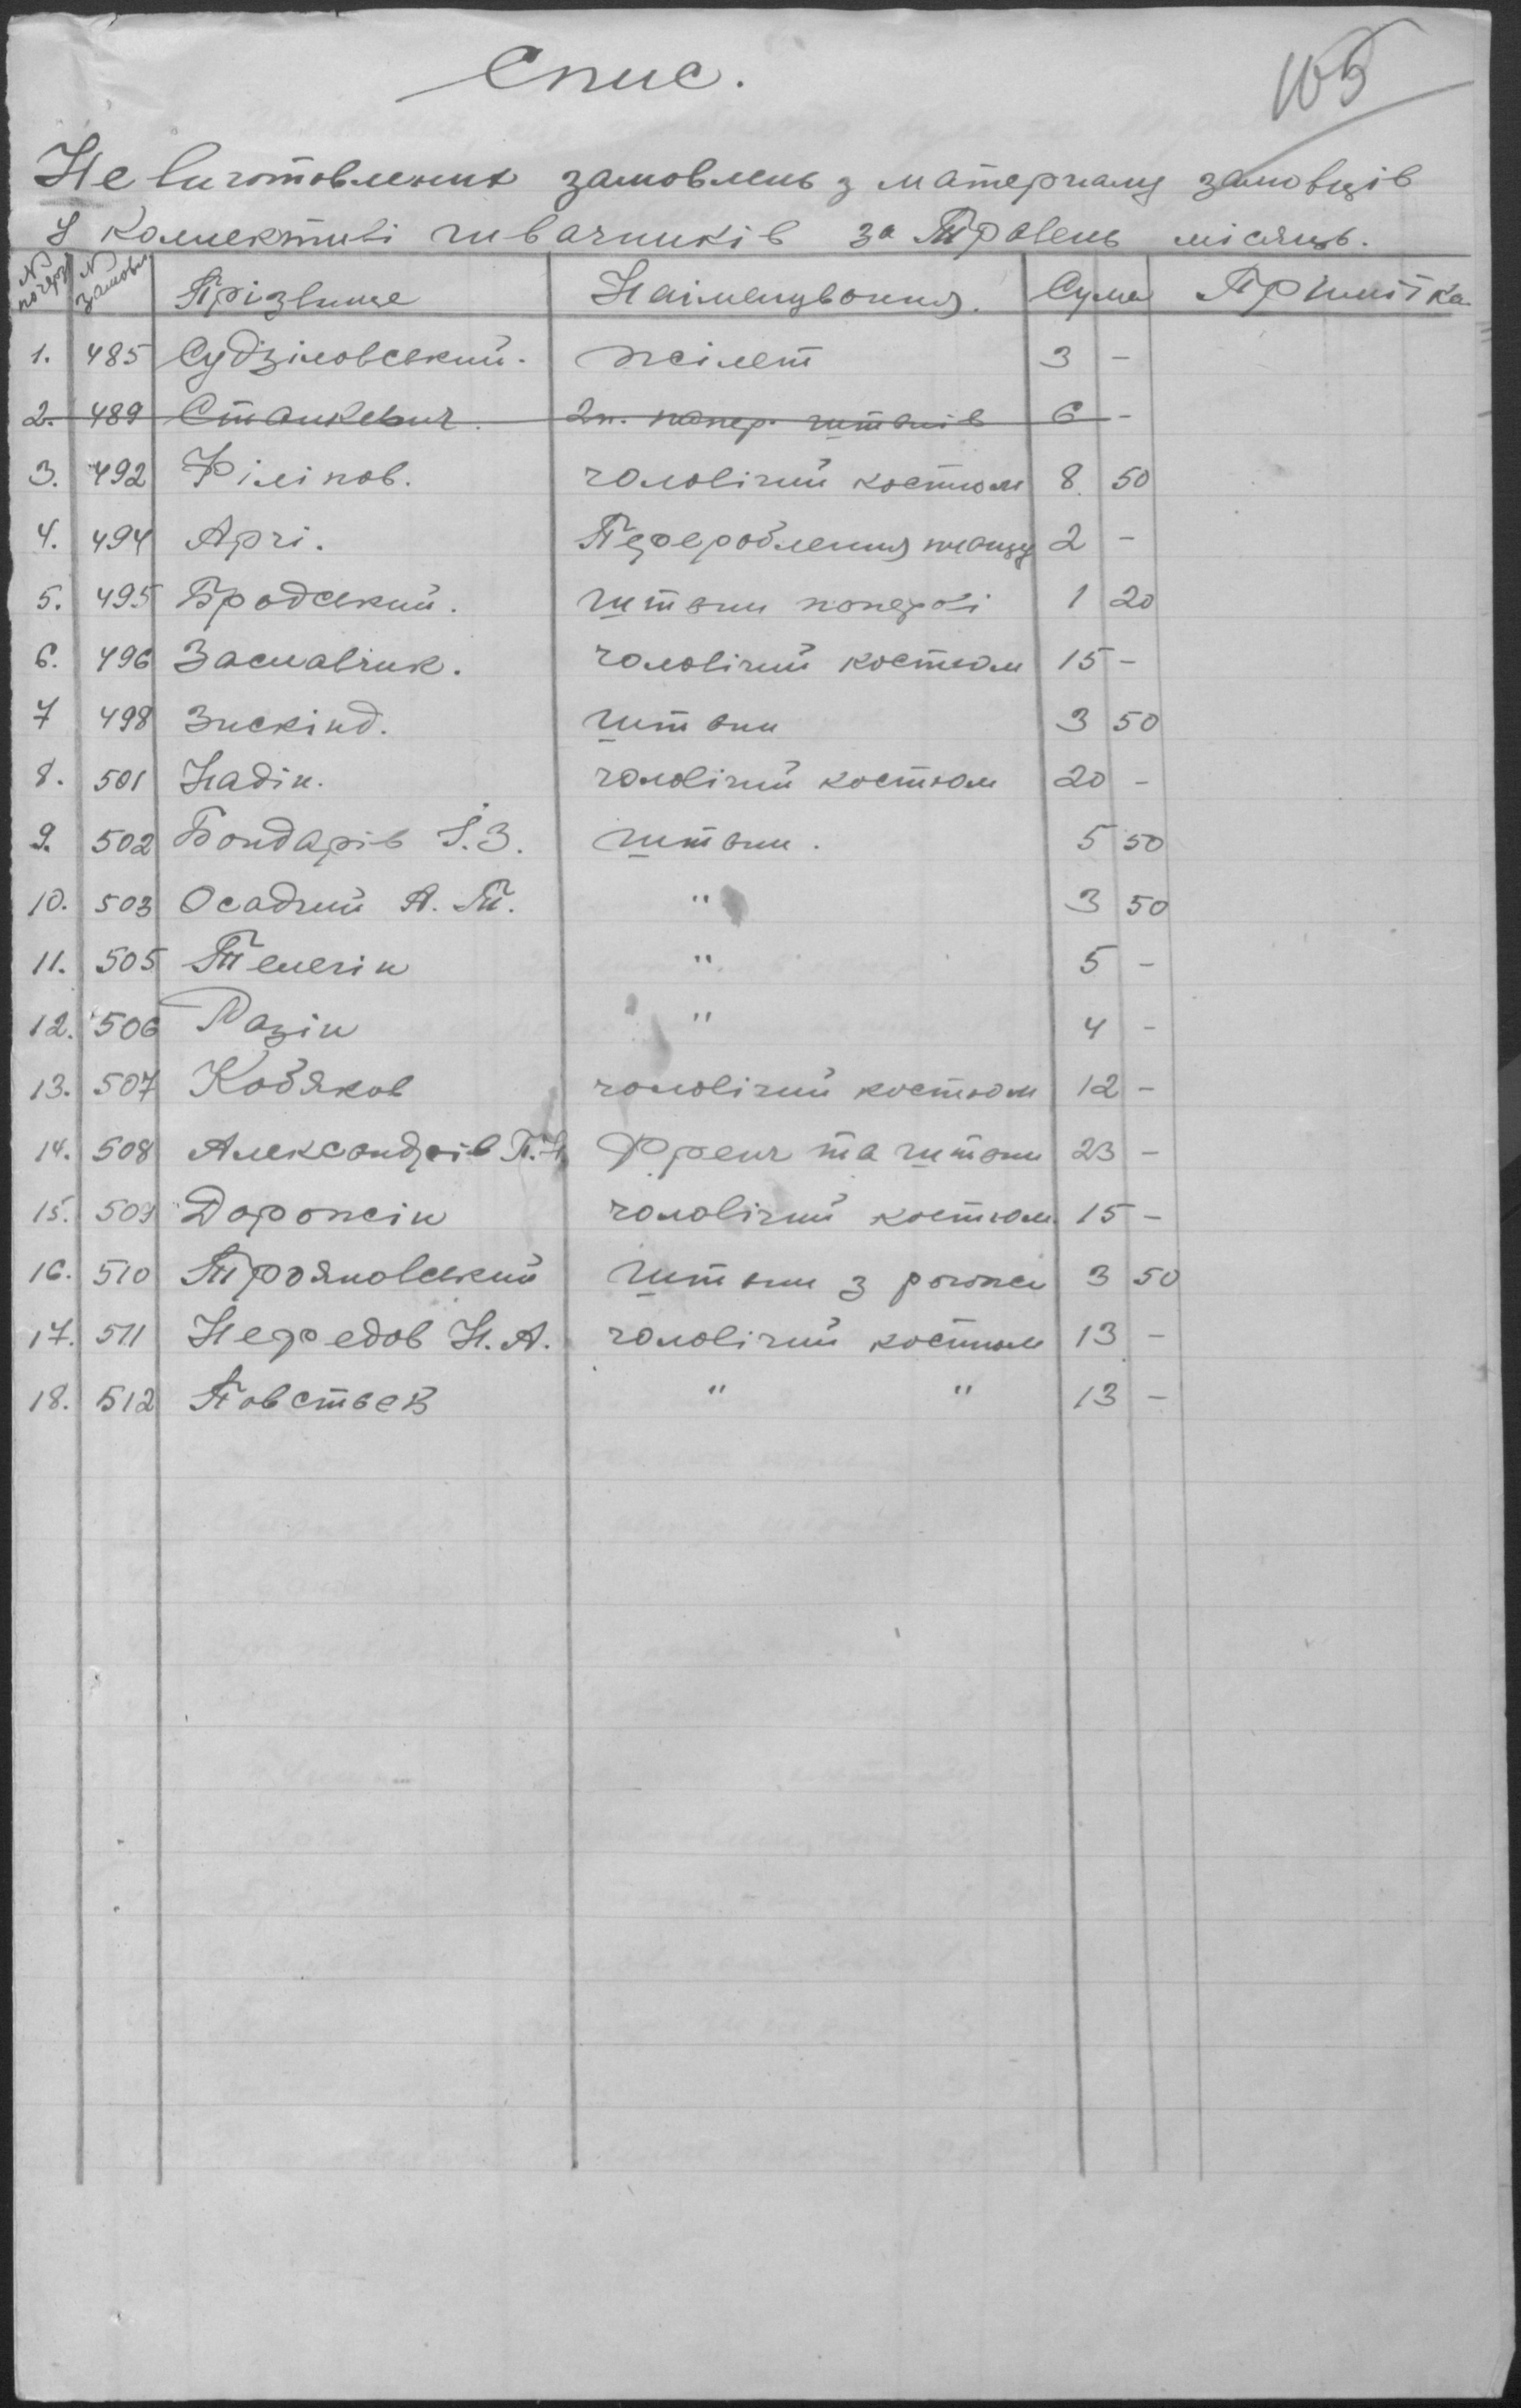 Спис.
105
Не виготовлених замовлень з матерналу замовців
у коллективі швачників за Травень місяць.
№ по черзі № замовл Прізвище Наіменування. Сума Примітка
1. 485 Судзіловський. жілет 3 -
2. 489 Станкевич. 2 п. попер. штанів 6 -
3. 492 Філіпов. чоловічий костюм 8. 50
4. 494 Арчі. Перероблення плащу 2 -
5. 495 Бродський. штани поперові 1 20
6. 496 Заславчик. чоловічий костюм 15 -
7 498 Зискінд. штани 3 50
8. 501 Надін. чоловічий костюм 20 -
9. 502 Бондарів І. З. штани. 5 50
10. 503 Осадчий А. Т. " 3 50
11. 505 Телегін " 5 -
12. 506 Разін " 4 -
13. 507 Кобяков чоловічий костюм 12 -
14. 508 Александрів П. Френч та штани 23 -
15. 509 Дорожін чоловічий костюм. 15 -
16. 510 Трояновський штани з рогожи 3 50
17. 511 Нефедов Н. А. чоловічий костюм 13 -
18. 512 Товстьев " " 13 -